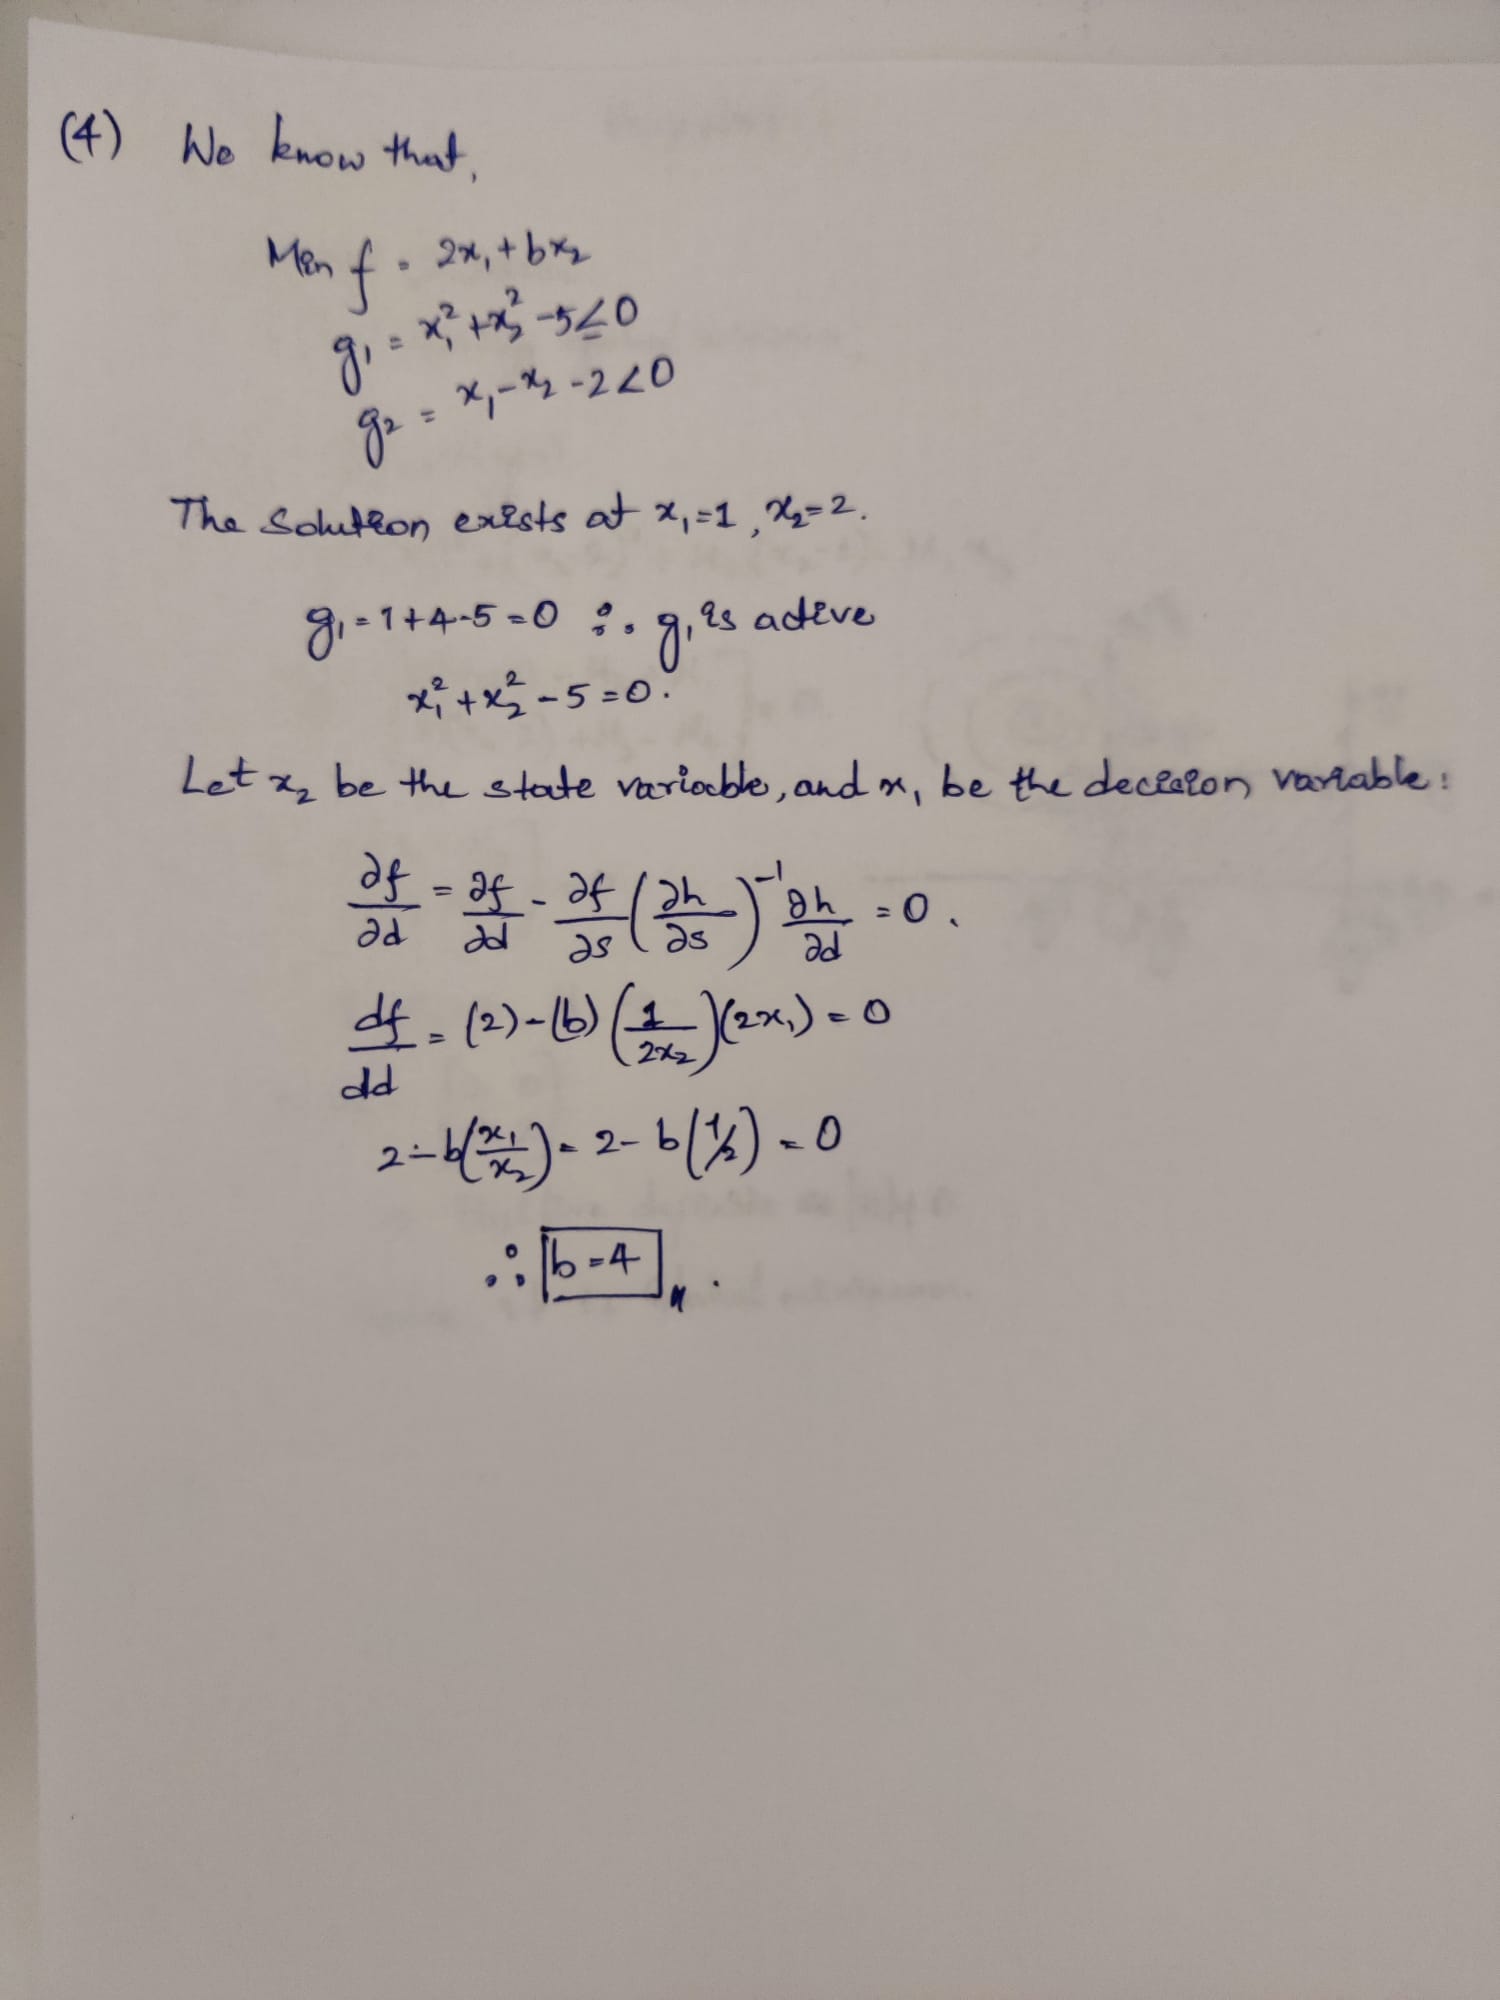 (4) We know that,
Min f = 2x₁ + bx₂
g₁ = x₁² + x₂² - 5 ≤ 0
g₂ = x₁ - x₂ - 2 < 0
The solution exists at x₁ = 1, x₂ = 2.
g₁ = 1 + 4 - 5 = 0 ∴ g₁ is active
x₁² + x₂² - 5 = 0.
Let x₂ be the state variable, and x₁ be the decision variable:
∂f/∂d = ∂f/∂d - ∂f/∂s (∂h/∂s)⁻¹ ∂h/∂d = 0.
df/dd = (2) - (b) (1/2x₂)(2x₁) = 0
2 - b(x₁/x₂) = 2 - b(1/2) = 0
∴ b = 4